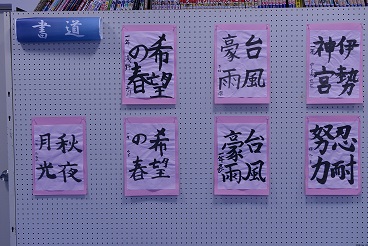 書道
希望
の春
台風
豪雨
伊勢
神宮
秋夜
月光
希望
の春
台風
豪雨
忍耐
努力